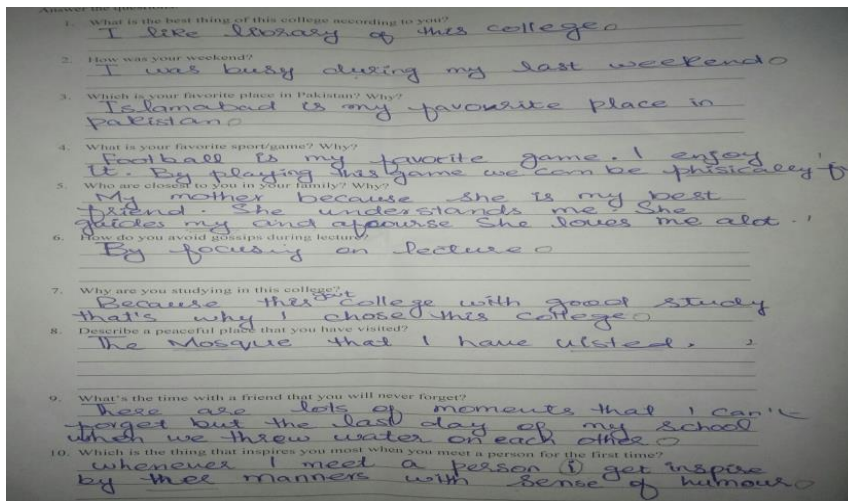 Answer the questions:
1. What is the best thing of this college according to you?
I like library of this college.
2. How was your weekend?
I was busy during my last weekend.
3. Which is your favorite place in Pakistan? Why?
Islamabad is my favourite place in
pakistan.
4. What is your favorite sport/game? Why?
Football is my favorite game. I enjoy
it. By playing this game we can be phisically f
5. Who are closest to you in your family? Why?
My mother because she is my best
friend. She understands me. She
guides my and afcourse she loves me alot.
6. How do you avoid gossips during lecture?
By focusing on lecture.
7. Why are you studying in this college?
Because this govt college with good study
that's why I chose this college.
8. Describe a peaceful place that you have visited?
The Mosque that I have visted.
9. What's the time with a friend that you will never forget?
There are lots of moments that I can't
forget but the last day of my school
when we threw water on each other.
10. Which is the thing that inspires you most when you meet a person for the first time?
whenever I meet a person i get inspire
by manners with sense of humour.